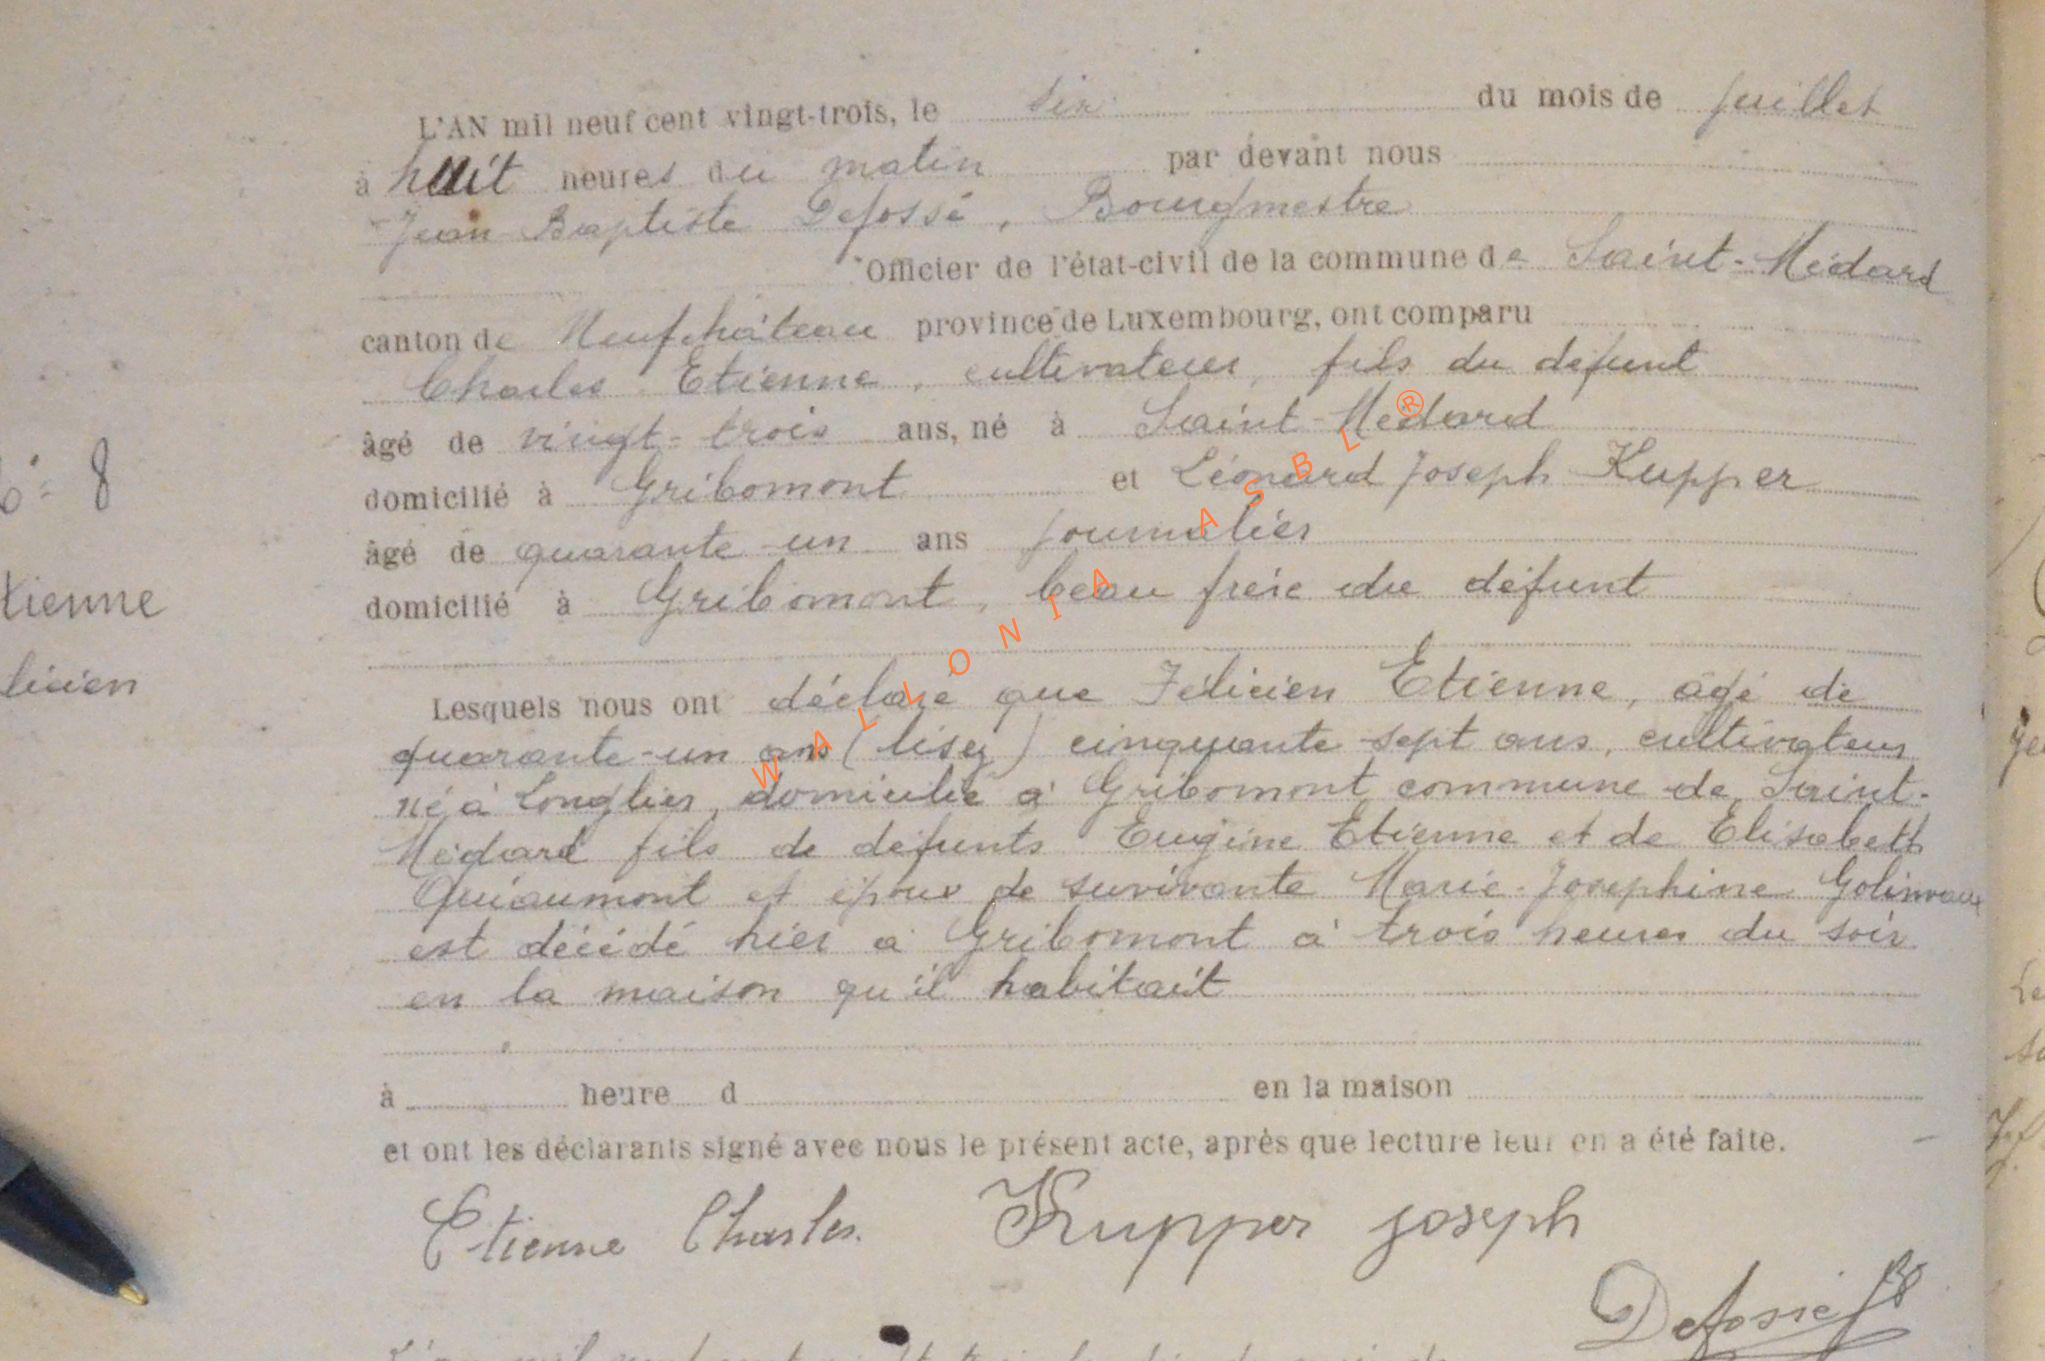 L'AN mil neuf cent vingt-trois, le six du mois de juillet
à huit heures du matin par devant nous
Jean Baptiste Defossé, Bourgmestre
Officier de l'état-civil de la commune de Saint-Médard
canton de Neufchâteau province de Luxembourg, ont comparu
Charles Etienne, cultivateur, fils du défunt
âgé de vingt-trois ans, né à Saint-Médard
domicilié à Gribomont et Léonard Joseph Kupper
âgé de quarante-un ans journalier
domicilié à Gribomont, beau frère du défunt
Lesquels nous ont déclaré que Félicien Etienne, âgé de
quarante-un ans (lisez) cinquante-sept ans, cultivateur
né à Longlier, domicilié à Gribomont commune de Saint-
Médard fils de défunts Eugène Etienne et de Elisabeth
Quiaumont et époux de survivante Marie-Josephine Golinvaux
est décédé hier à Gribomont à trois heures du soir
en la maison qu'il habitait
à heure d en la maison
et ont les déclarants signé avec nous le présent acte, après que lecture leur en a été faite.
Etienne Charles. Kupper joseph
Defossé JB
8
tienne
licien
WALLONIA ASBL®